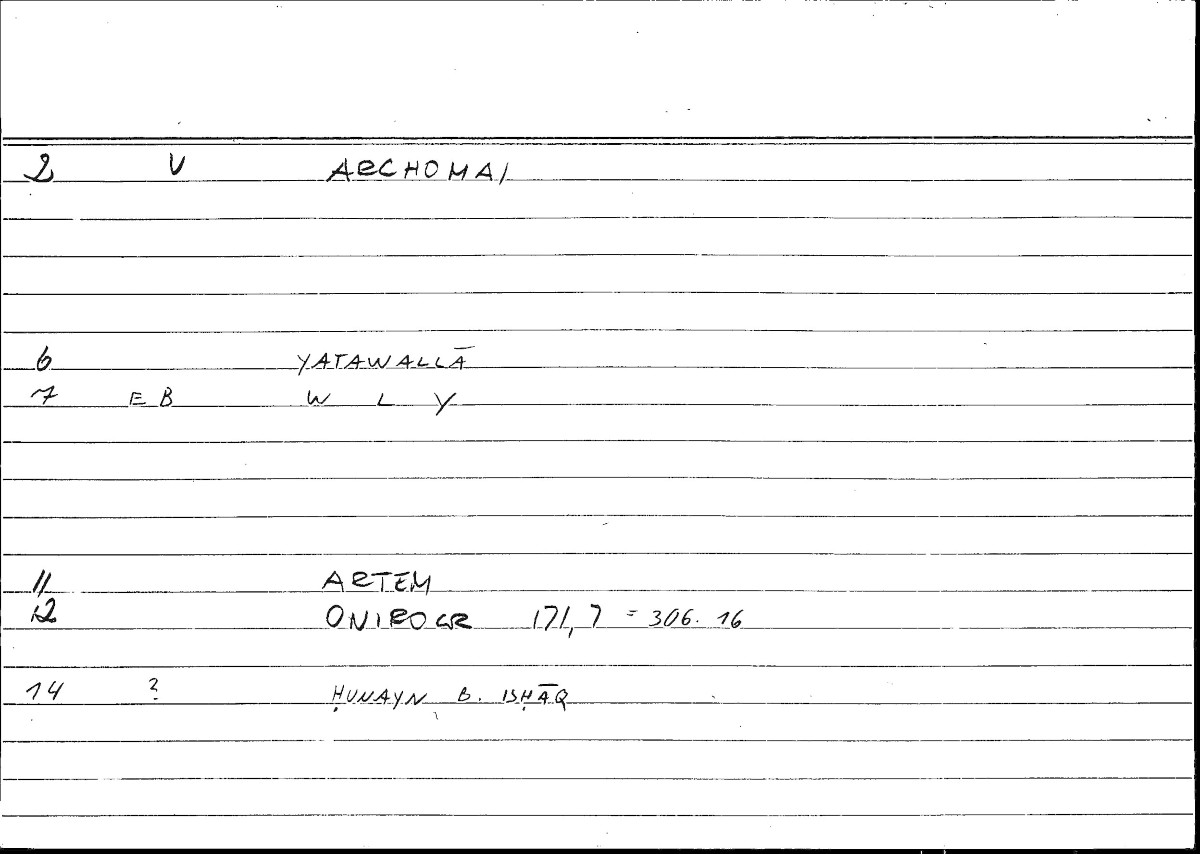 2 V ARCHOMAI
6 YATAWALLĀ
7 EB W L Y
11 ARTEM
12 ONIROCR 171,7 = 306.16
14 ? ḤUNAYN B. ISḤĀQ